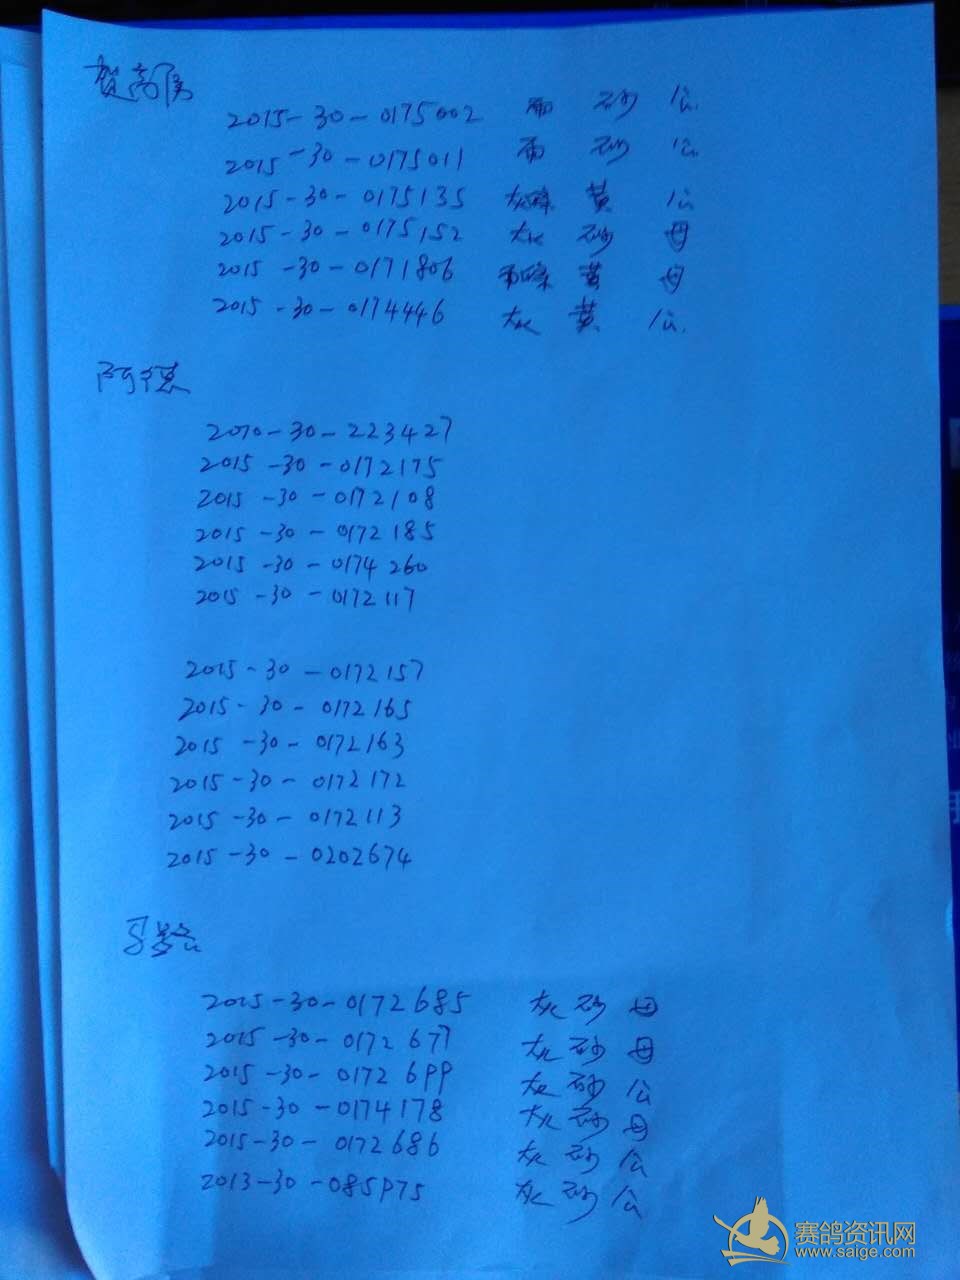 贺高信
2015-30-0175002 雨 砂 公
2015-30-0175011 雨 砂 公
2015-30-0175135 灰 黄 公
2015-30-0175152 灰 砂 母
2015-30-0171806 雨 黄 母
2015-30-0174446 灰 黄 公
阿德
2010-30-223427
2015-30-0172175
2015-30-0172108
2015-30-0172185
2015-30-0174260
2015-30-0172117
2015-30-0172157
2015-30-0172165
2015-30-0172163
2015-30-0172172
2015-30-0172113
2015-30-0202674
2015-30-0172685 灰 砂 母
2015-30-0172677 灰 砂 母
2015-30-0172699 灰 砂 公
2015-30-0174178 灰 砂 母
2015-30-0172686 灰 砂 公
2013-30-085975 灰 砂 公
赛鸽资讯网
www.saige.com